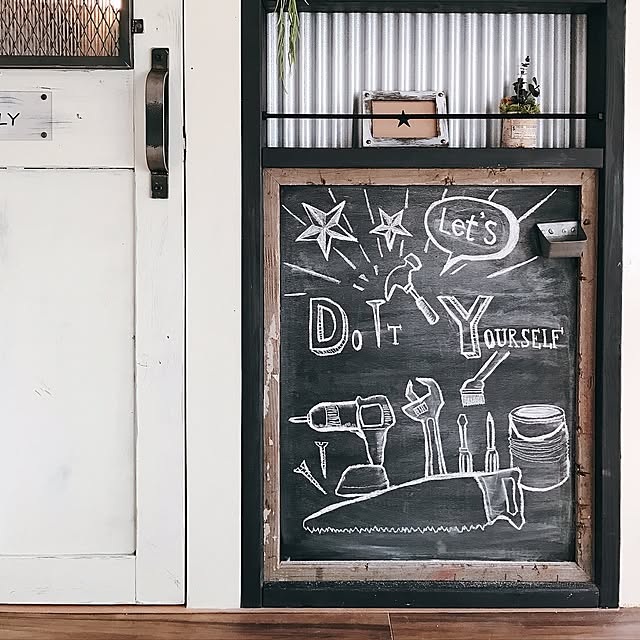 LY
Let's
Do It Yourself